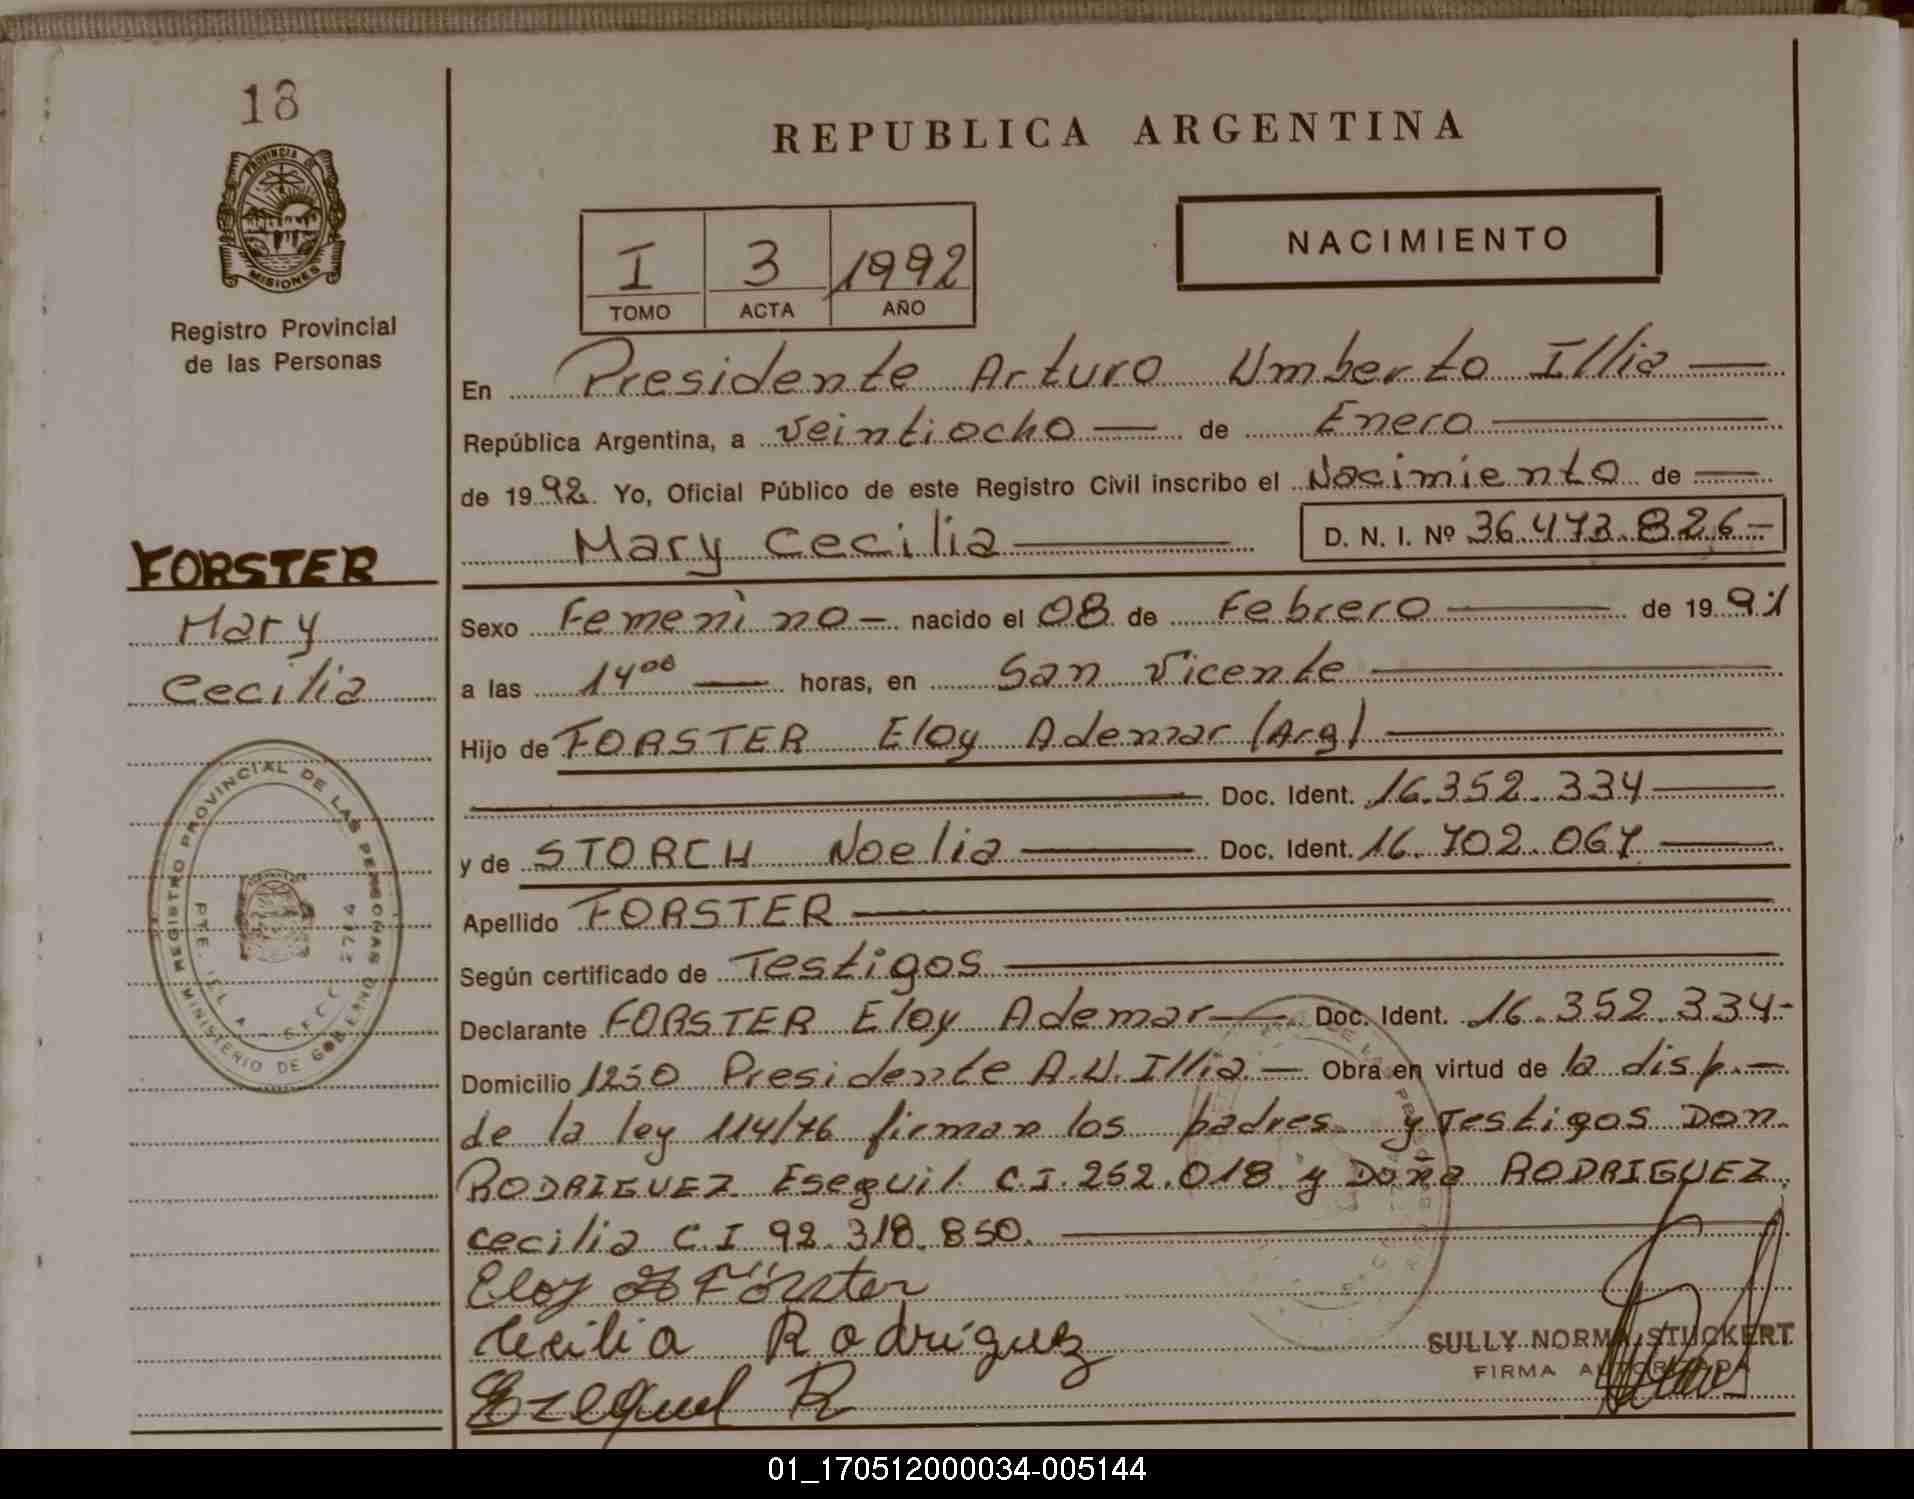 18
PROVINCIA DE
MISIONES
Registro Provincial
de las Personas
FORSTER
Mary
Cecilia
REGISTRO PROVINCIAL DE LAS PERSONAS
MINISTERIO DE GOBIERNO
REPUBLICA ARGENTINA
I 3 1992
TOMO ACTA AÑO
NACIMIENTO
En Presidente Arturo Umberto Illia
República Argentina, a veintiocho de Enero
de 1992. Yo, Oficial Público de este Registro Civil inscribo el Nacimiento de
Mary Cecilia D. N. I. Nº 36.473.826-
Sexo Femenino - nacido el 08 de Febrero de 1991
a las 14 00 horas, en San Vicente
Hijo de FORSTER Eloy Ademar (Arg)
Doc. Ident. 16.352.334
y de STORCH Noelia Doc. Ident. 16.702.067
Apellido FORSTER
Según certificado de Testigos
Declarante FORSTER Eloy Ademar Doc. Ident. 16.352.334-
Domicilio 1250 Presidente A.U. Illia.- Obra en virtud de la disp.-
de la ley 114/76 firman los padres y Testigos Don
RODRIGUEZ Esequil C.I. 252.018 y Doña RODRIGUEZ
Cecilia C.I 92.318.850.
Eloy Förster
Cecilia Rodríguez
Ezequel R
SULLY NORMA STUCKERT
FIRMA AUTORIZADA
01_170512000034-005144